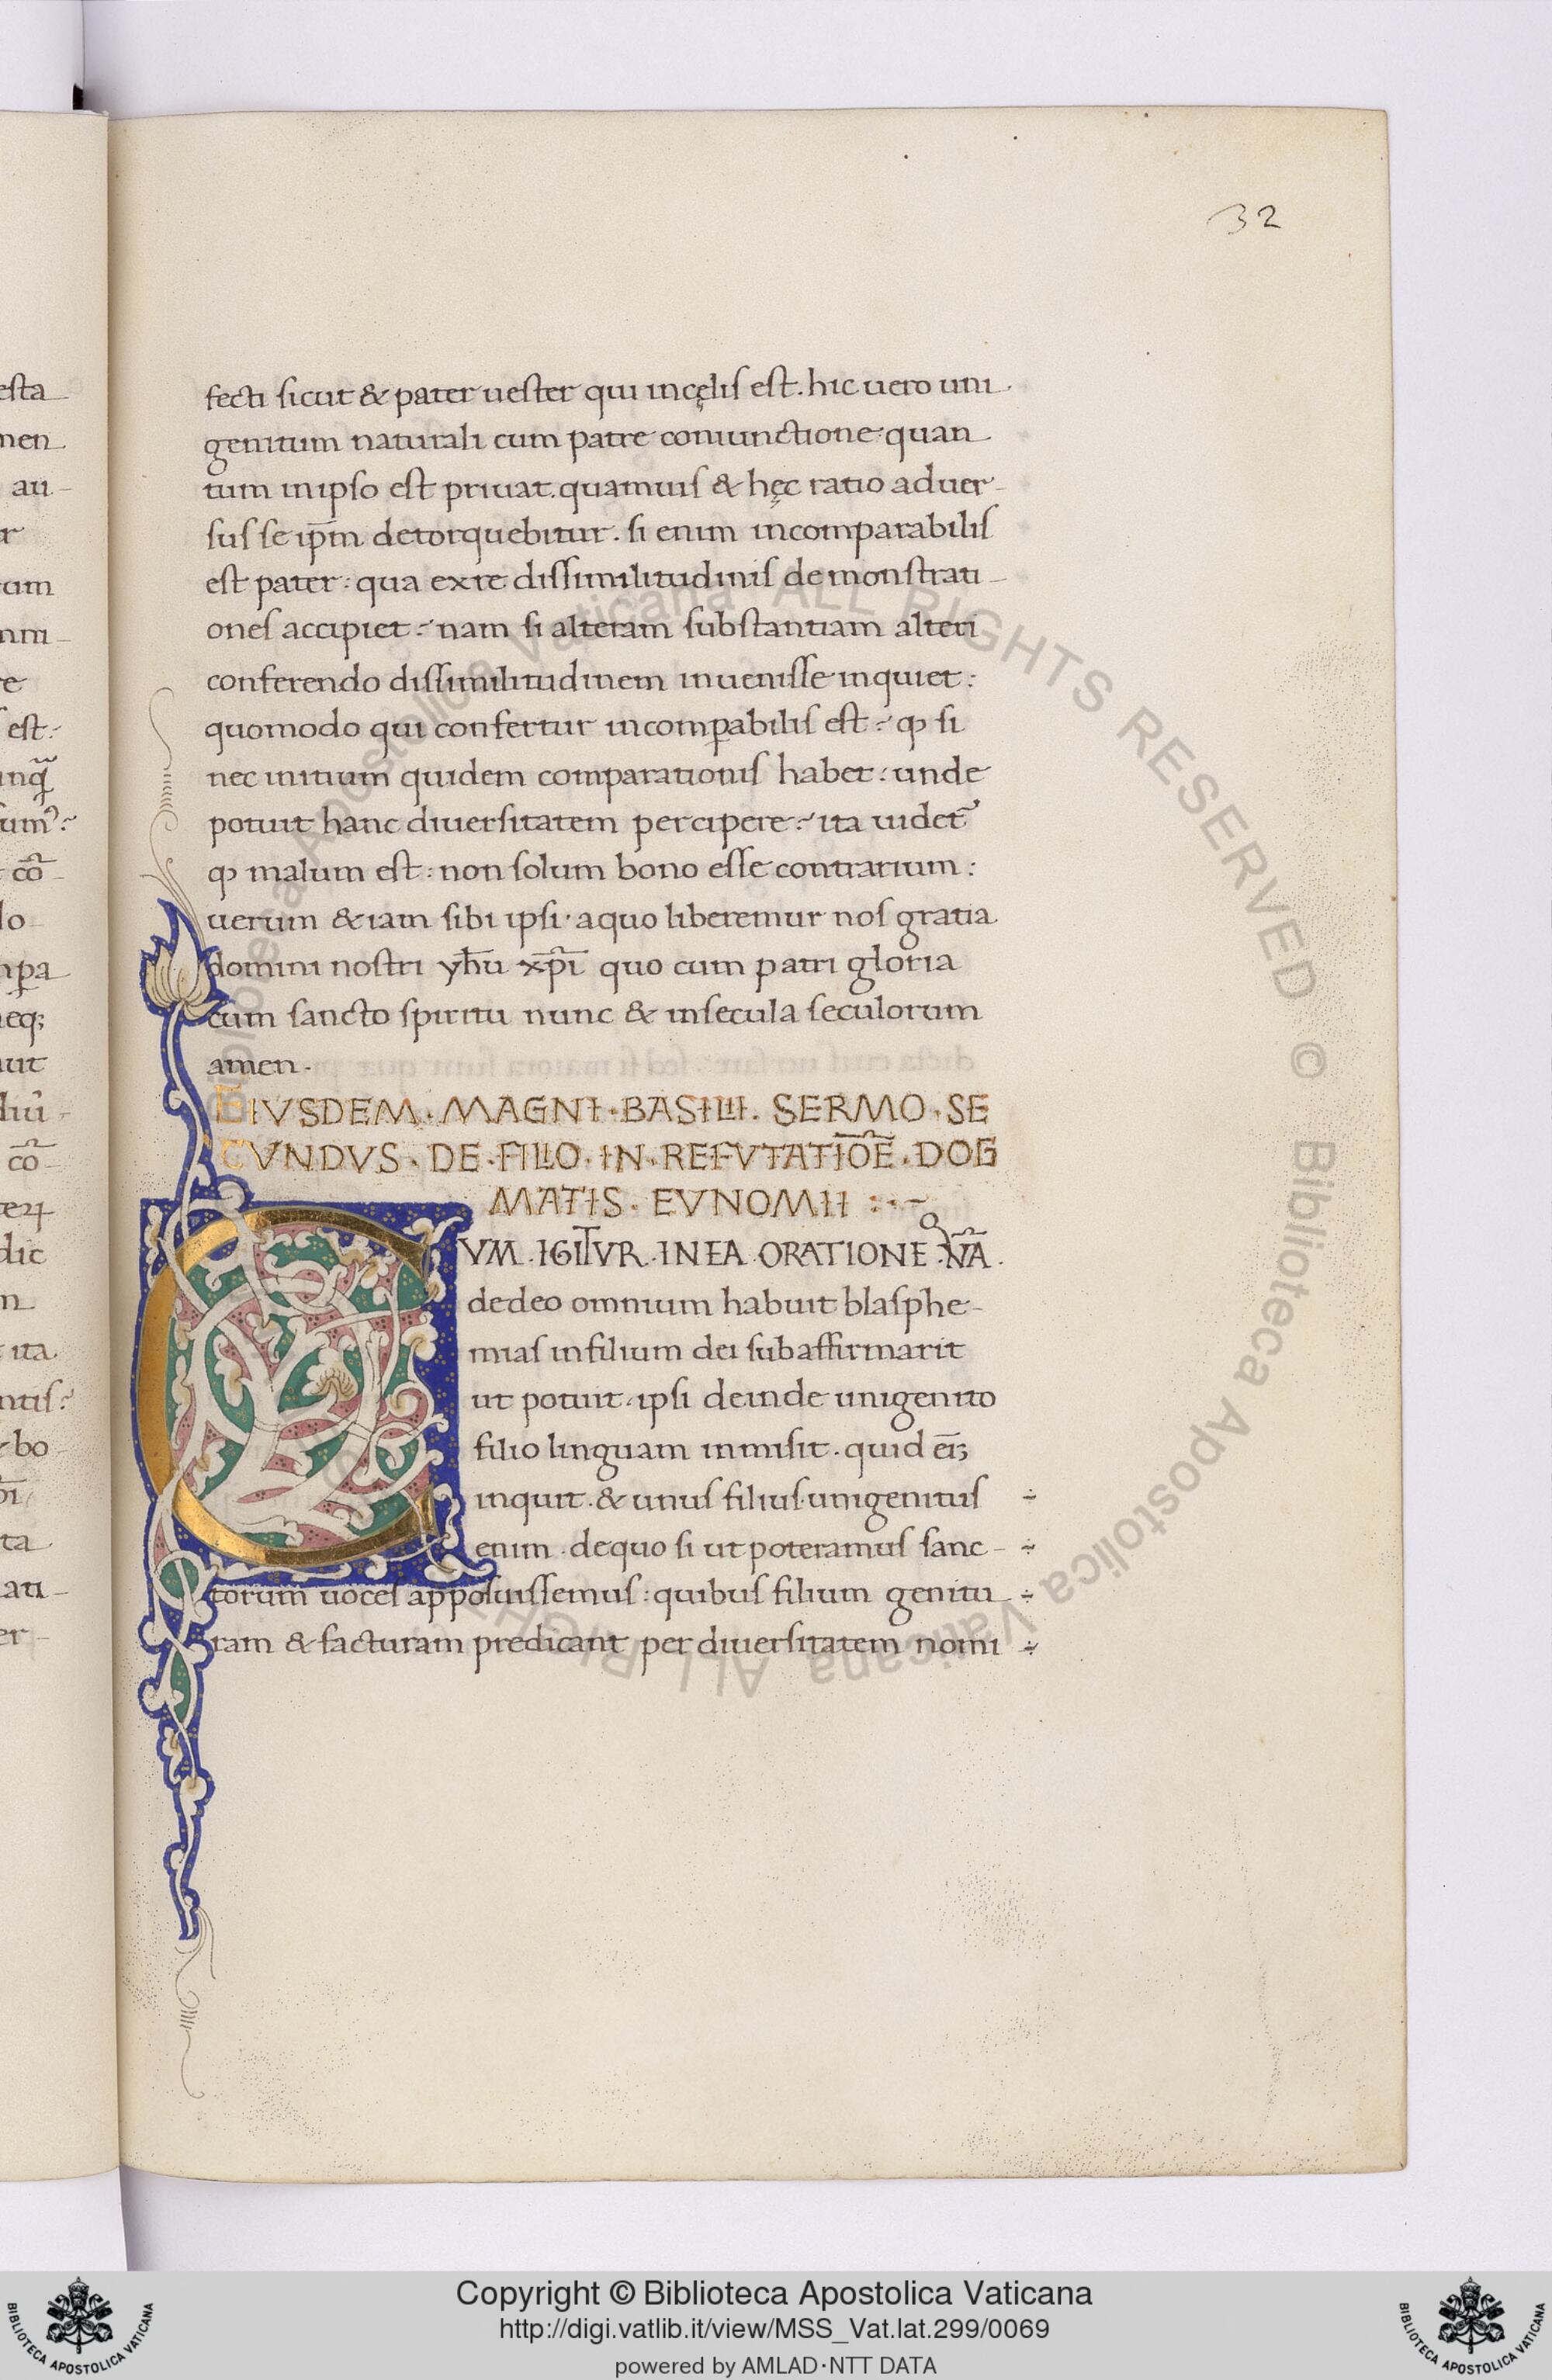 32
fecti sicut & pater uester qui incęlis est. hic uero uni
genitum naturali cum patre coniunctione quan
tum inipso est priuat. quamuis & hęc ratio aduer-
sus se ip̄m detorquebitur. si enim incomparabilis
est pater: qua exre dissimilitudinis demonstrati-
ones accipiet? nam si alteram substantiam alteri
conferendo dissimilitudinem inuenisse inquiet:
quomodo qui confertur incomꝑabilis est? ꝙ si
nec initium quidem comparationis habet: unde
potuit hanc diuersitatem percipere? ita uidet᷑
ꝙ malum est: non solum bono esse contrarium:
uerum & iam sibi ipsi. aquo liberemur nos gratia
domini nostri yħu xp̄i quo cum patri gloria
cum sancto spiritu nunc & insecula seculorum
amen.
EIVSDEM. MAGNI. BASILII. SERMO. SE
CVNDVS. DE. FILIO. IN. REFVTATIŌE. DOG
MATIS. EVNOMII :~
CVM. IGITVR. INEA ORATIONE
dedeo omnium habuit blasphe-
mias infilium dei subaffirmarit
ut potuit. ipsi deinde unigenito
filio linguam inmisit. quid ei̅ꝫ
inquit. & unus filius. unigenitus
enim. dequo si ut poteramus sanc-
torum uoces apposuissemus: quibus filium genitu
ram & facturam predicant per diuersitatem nomi
esta
men
au-
r
est:
lo
aut
dic
ita
bo
ta
ati-
er-
Biblioteca Apostolica Vaticana ALL RIGHTS RESERVED © Biblioteca Apostolica Vaticana ALL RIGHT
Copyright © Biblioteca Apostolica Vaticana
http://digi.vatlib.it/view/MSS_Vat.lat.299/0069
powered by AMLAD·NTT DATA
BIBLIOTECA APOSTOLICA VATICANA
BIBLIOTECA APOSTOLICA VATICANA